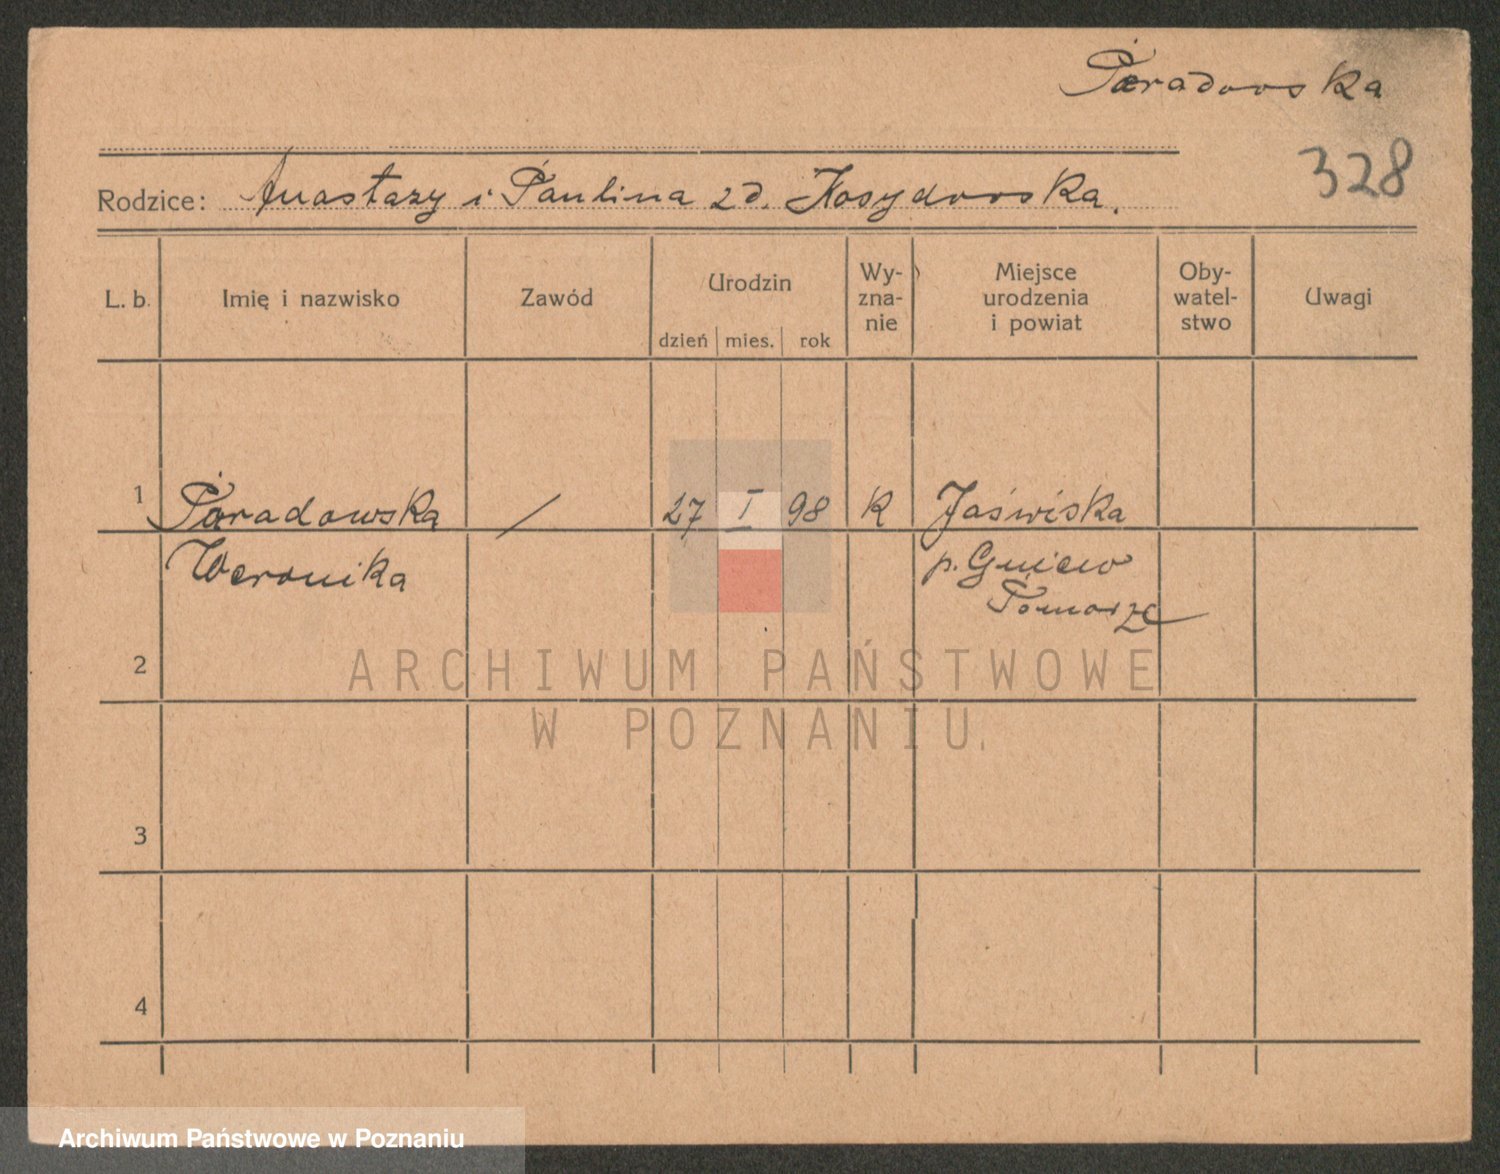 Paradowska
328
Rodzice: Anastazy i Paulina zd. Kosydowska.
L. b. Imię i nazwisko Zawód Urodzin dzień mies. rok Wy-zna-nie Miejsce urodzenia i powiat Oby-watel-stwo Uwagi
1 Paradowska / 27 I 98 K Jaświska
Weronika p. Gniew
Pomorze
2
ARCHIWUM PAŃSTWOWE
W POZNANIU
3
4
Archiwum Państwowe w Poznaniu